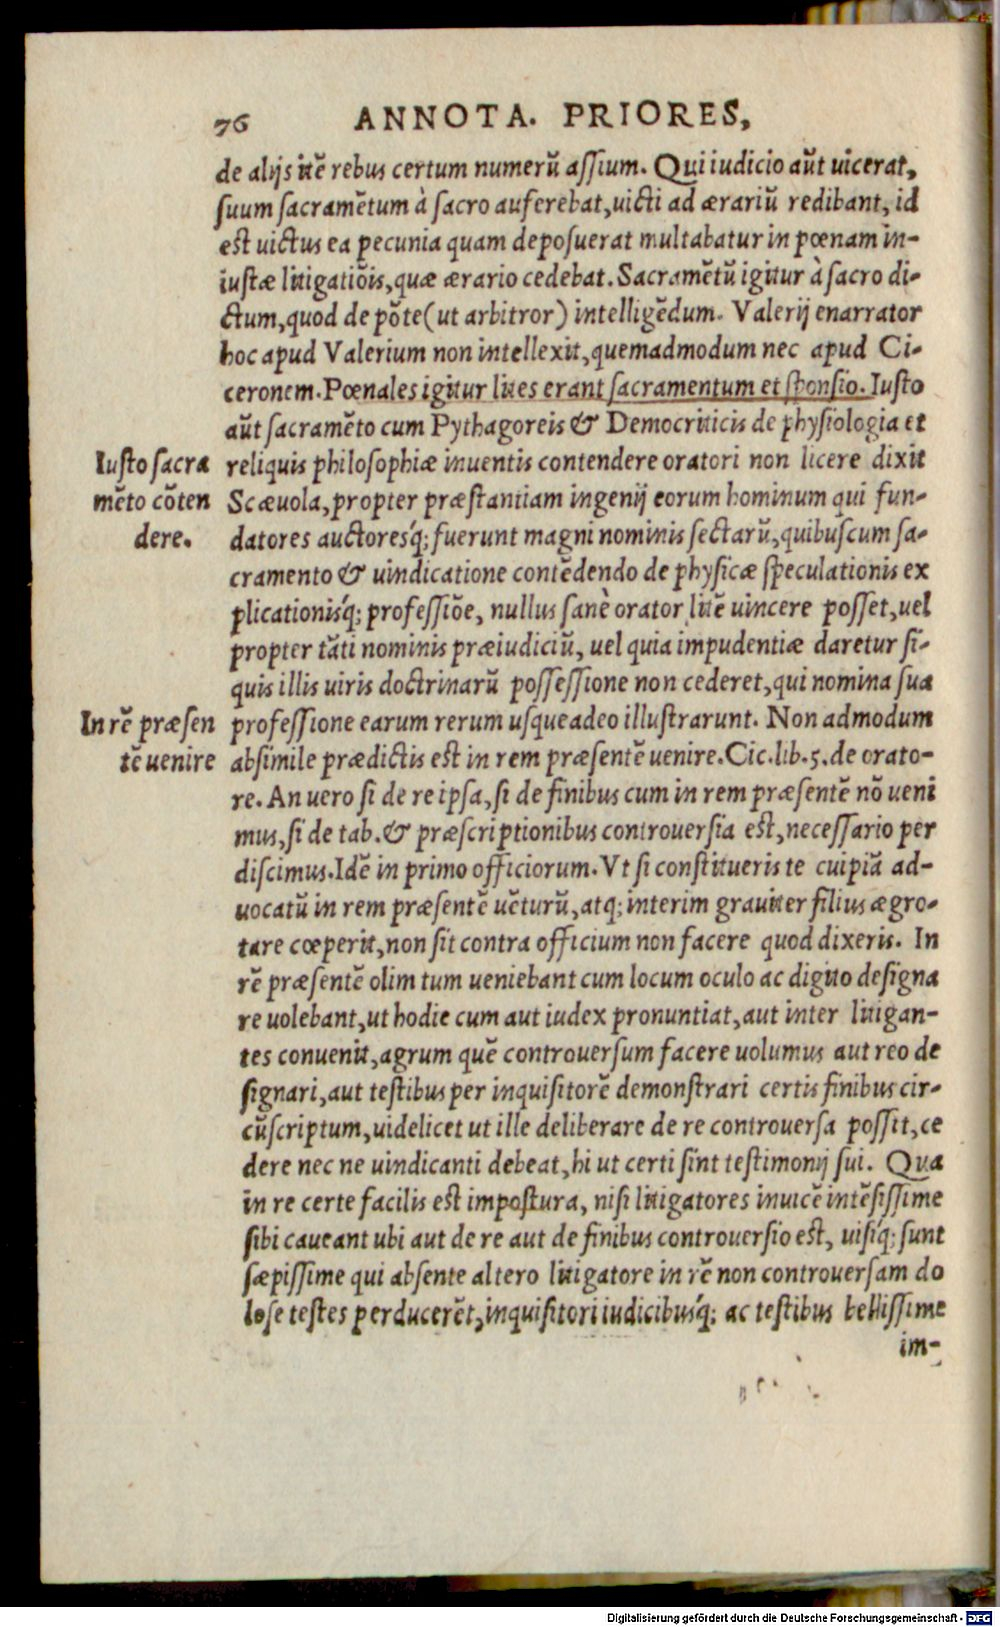 76 ANNOTA. PRIORES,
de alijs itē rebus certum numerū aſſium. Qui iudicio aūt uicerat,
ſuum ſacramētum à ſacro auferebat, uicti ad ærariū redibant, id
est uictus ea pecunia quam depoſuerat multabatur in pœnam in-
iustæ litigatiōis, quæ ærario cedebat. Sacramētū igitur à ſacro di-
ctum, quod de pōte (ut arbitror) intelligēdum. Valerij enarrator
hoc apud Valerium non intellexit, quemadmodum nec apud Ci-
ceronem. Pœnales igitur lites erant ſacramentum et ſponſio. Iusto
aūt ſacramēto cum Pythagoreis & Democriticis de phyſiologia et
Iusto ſacra
mēto cōten
dere.
reliquis philoſophiæ inuentis contendere oratori non licere dixit
Scæuola, propter præstantiam ingenij eorum hominum qui fun-
datores auctoresq́; fuerunt magni nominis ſectarū, quibuſcum ſa-
cramento & uindicatione contēdendo de phyſicæ ſpeculationis ex
plicationisq́; profeſſiōe, nullus ſanè orator litē uincere poſſet, uel
propter tāti nominis præiudiciū, uel quia impudentiæ daretur ſi-
quis illis uiris doctrinarū poſſeſſione non cederet, qui nomina ſua
In rē præſen
tē uenire
profeſſione earum rerum uſqueadeo illustrarunt. Non admodum
abſimile prædictis est in rem præſentē uenire. Cic. lib. 5. de orato-
re. An uero ſi de re ipſa, ſi de finibus cum in rem præſentē nō ueni
mus, ſi de tab. & præſcriptionibus controuerſia est, neceſſario per
diſcimus. Idē in primo officiorum. Vt ſi constitueris te cuipiā ad-
uocatū in rem præſentē uēturū, atq; interim grauiter filius ægro-
tare cœperit, non ſit contra officium non facere quod dixeris. In
rē præſentē olim tum ueniebant cum locum oculo ac digito deſigna
re uolebant, ut hodie cum aut iudex pronuntiat, aut inter litigan-
tes conuenit, agrum quē controuerſum facere uolumus aut reo de
ſignari, aut testibus per inquiſitorē demonstrari certis finibus cir-
cūſcriptum, uidelicet ut ille deliberare de re controuerſa poſſit, ce
dere nec ne uindicanti debeat, hi ut certi ſint testimonij ſui. Qua
in re certe facilis est impostura, niſi litigatores inuicē intēſiſſime
ſibi caueant ubi aut de re aut de finibus controuerſio est, uiſiq́; ſunt
ſæpiſſime qui abſente altero litigatore in rē non controuerſam do
loſe testes perducerēt, inquiſitori iudicibusq́; ac testibus belliſſime
im-
Digitalisierung gefördert durch die Deutsche Forschungsgemeinschaft - DFG